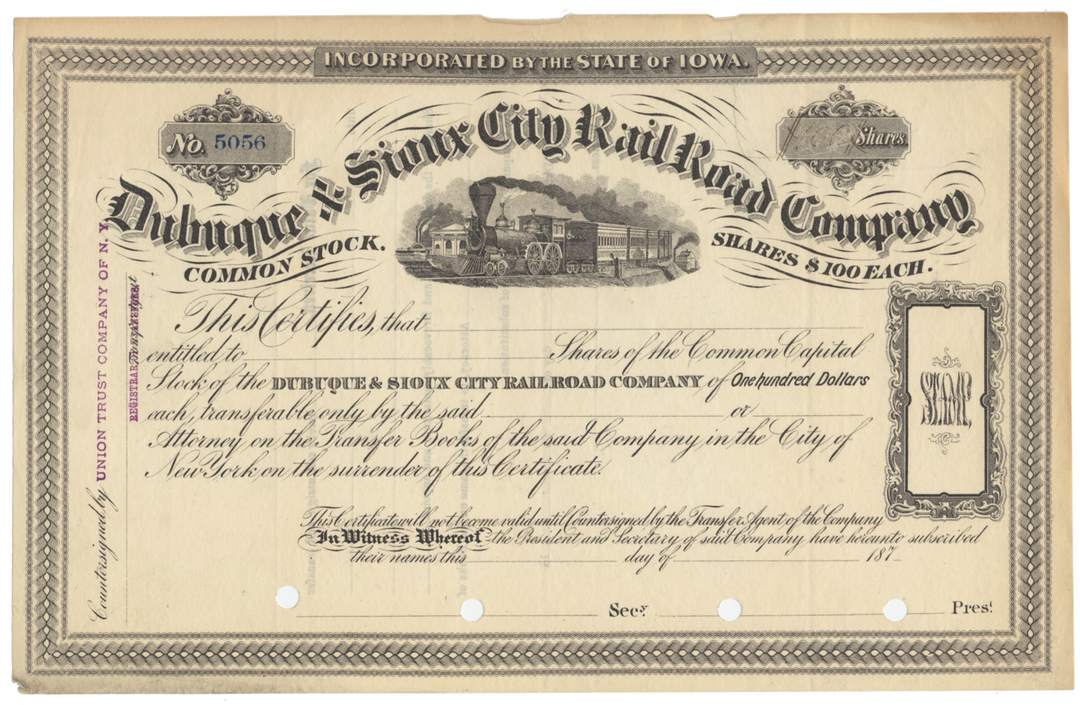 INCORPORATED BY THE STATE OF IOWA.
No. 5056
Shares
Dubuque & Sioux City Rail Road Company
COMMON STOCK.
SHARES $100 EACH.
This Certifies, that
entitled to Shares of the Common Capital
Stock of the DUBUQUE & SIOUX CITY RAIL ROAD COMPANY of One hundred Dollars
each, transferable only by the said or
Attorney on the Transfer Books of the said Company in the City of
New York on the surrender of this Certificate.
This Certificate will not become valid until Countersigned by the Transfer Agent of the Company
In Witness Whereof the President and Secretary of said Company have hereunto subscribed
their names this day of 187
Secy.
Prest.
STAMP.
Countersigned by UNION TRUST COMPANY OF N. Y.
REGISTRAR